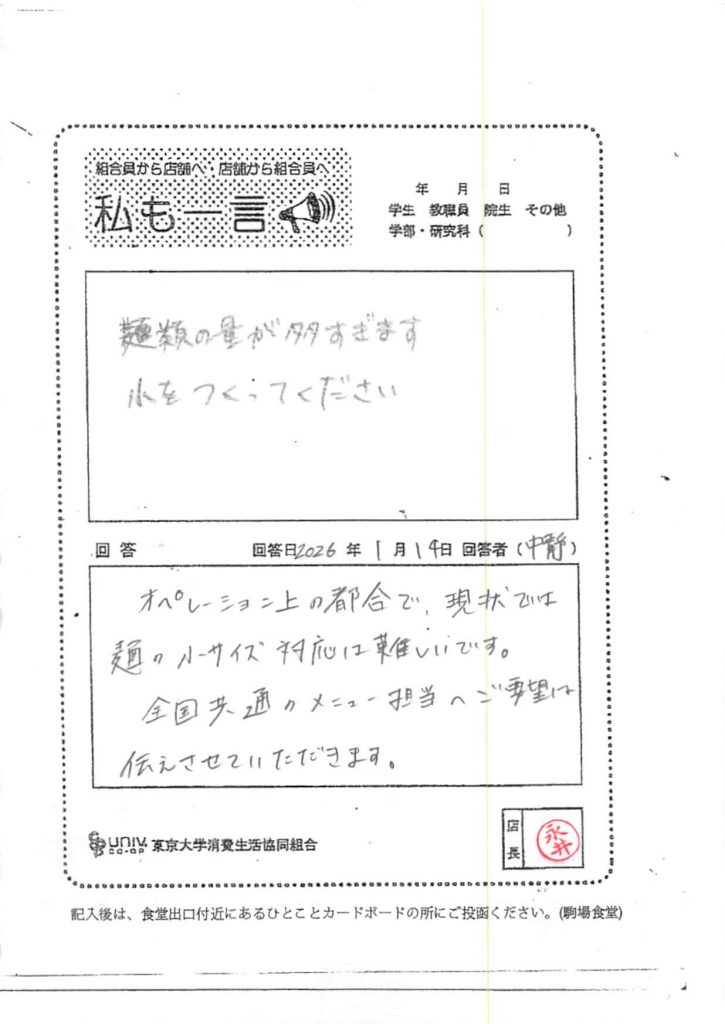 組合員から店舗へ・店舗から組合員へ
私も一言
年 月 日
学生 教職員 院生 その他
学部・研究科（ ）
麺類の量が多すぎます
小をつくってください
回答 回答日2026年1月14日 回答者（中静）
オペレーション上の都合で、現状では
麺の小サイズ対応は難しいです。
全国共通のメニュー担当へご要望は
伝えさせていただきます。
UNIV. CO-OP 東京大学消費生活協同組合
店長 永井
記入後は、食堂出口付近にあるひとことカードボードの所にご投函ください。(駒場食堂)